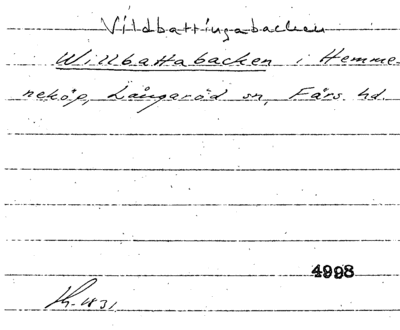 Vildbattingabacken
Willbattabacken i Hemme-
neköp, Långaröd sn, Färs hd.
4998